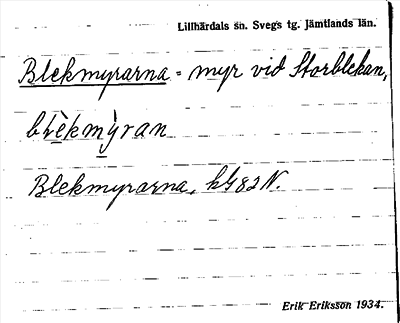 Lillhärdals sn. Svegs tg. Jämtlands län.
Blekmyrarna = myr vid Storblekan,
blèkmỳran
Blekmyrarna, kG 82 N.
Erik Eriksson 1934.